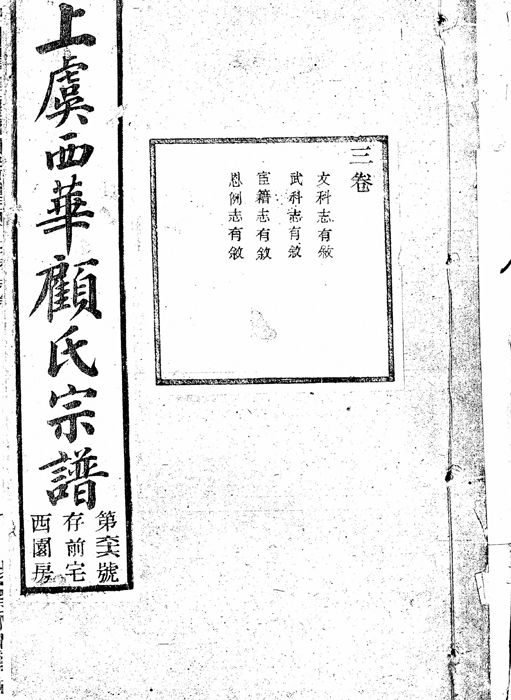 三卷
文科志有敘
武科志有敘
宦籍志有敘
恩例志有敘
上虞西華顧氏宗譜
第號
存前宅
西園房